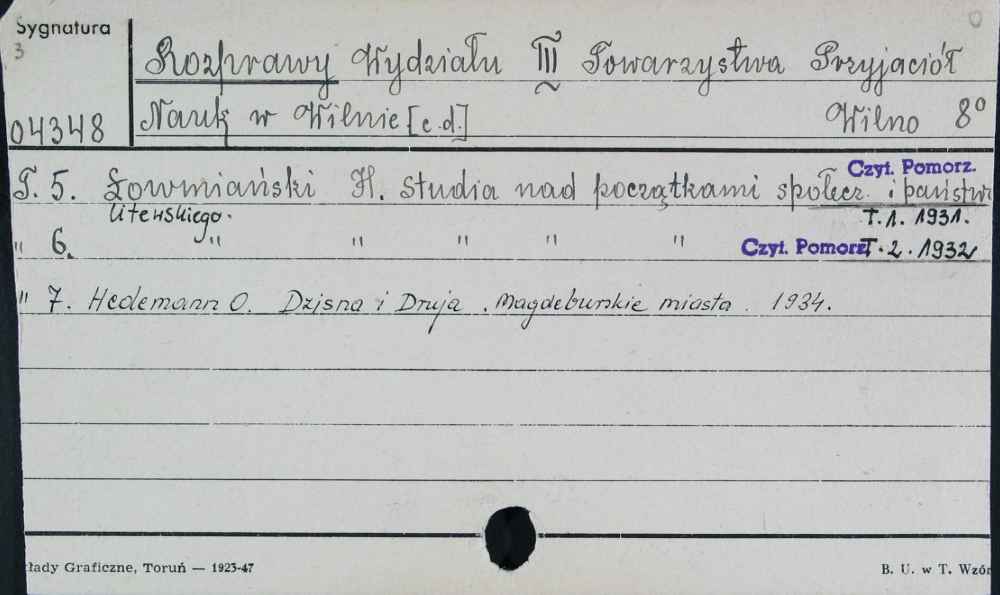 Sygnatura
3
04348
Rozprawy Wydziału III Towarzystwa Przyjaciół
Nauk w Wilnie [c.d.] Wilno 8°
Czyt. Pomorz.
T. 5. Łowmiański H. Studia nad początkami społecz. i państwa
litewskiego. T. 1. 1931.
" 6. " " " " " Czyt. Pomorz. T. 2. 1932
" 7. Hedemann O. Dzisna i Druja. Magdeburskie miasta. 1934.
kłady Graficzne, Toruń — 1923-47
B. U. w T. Wzór